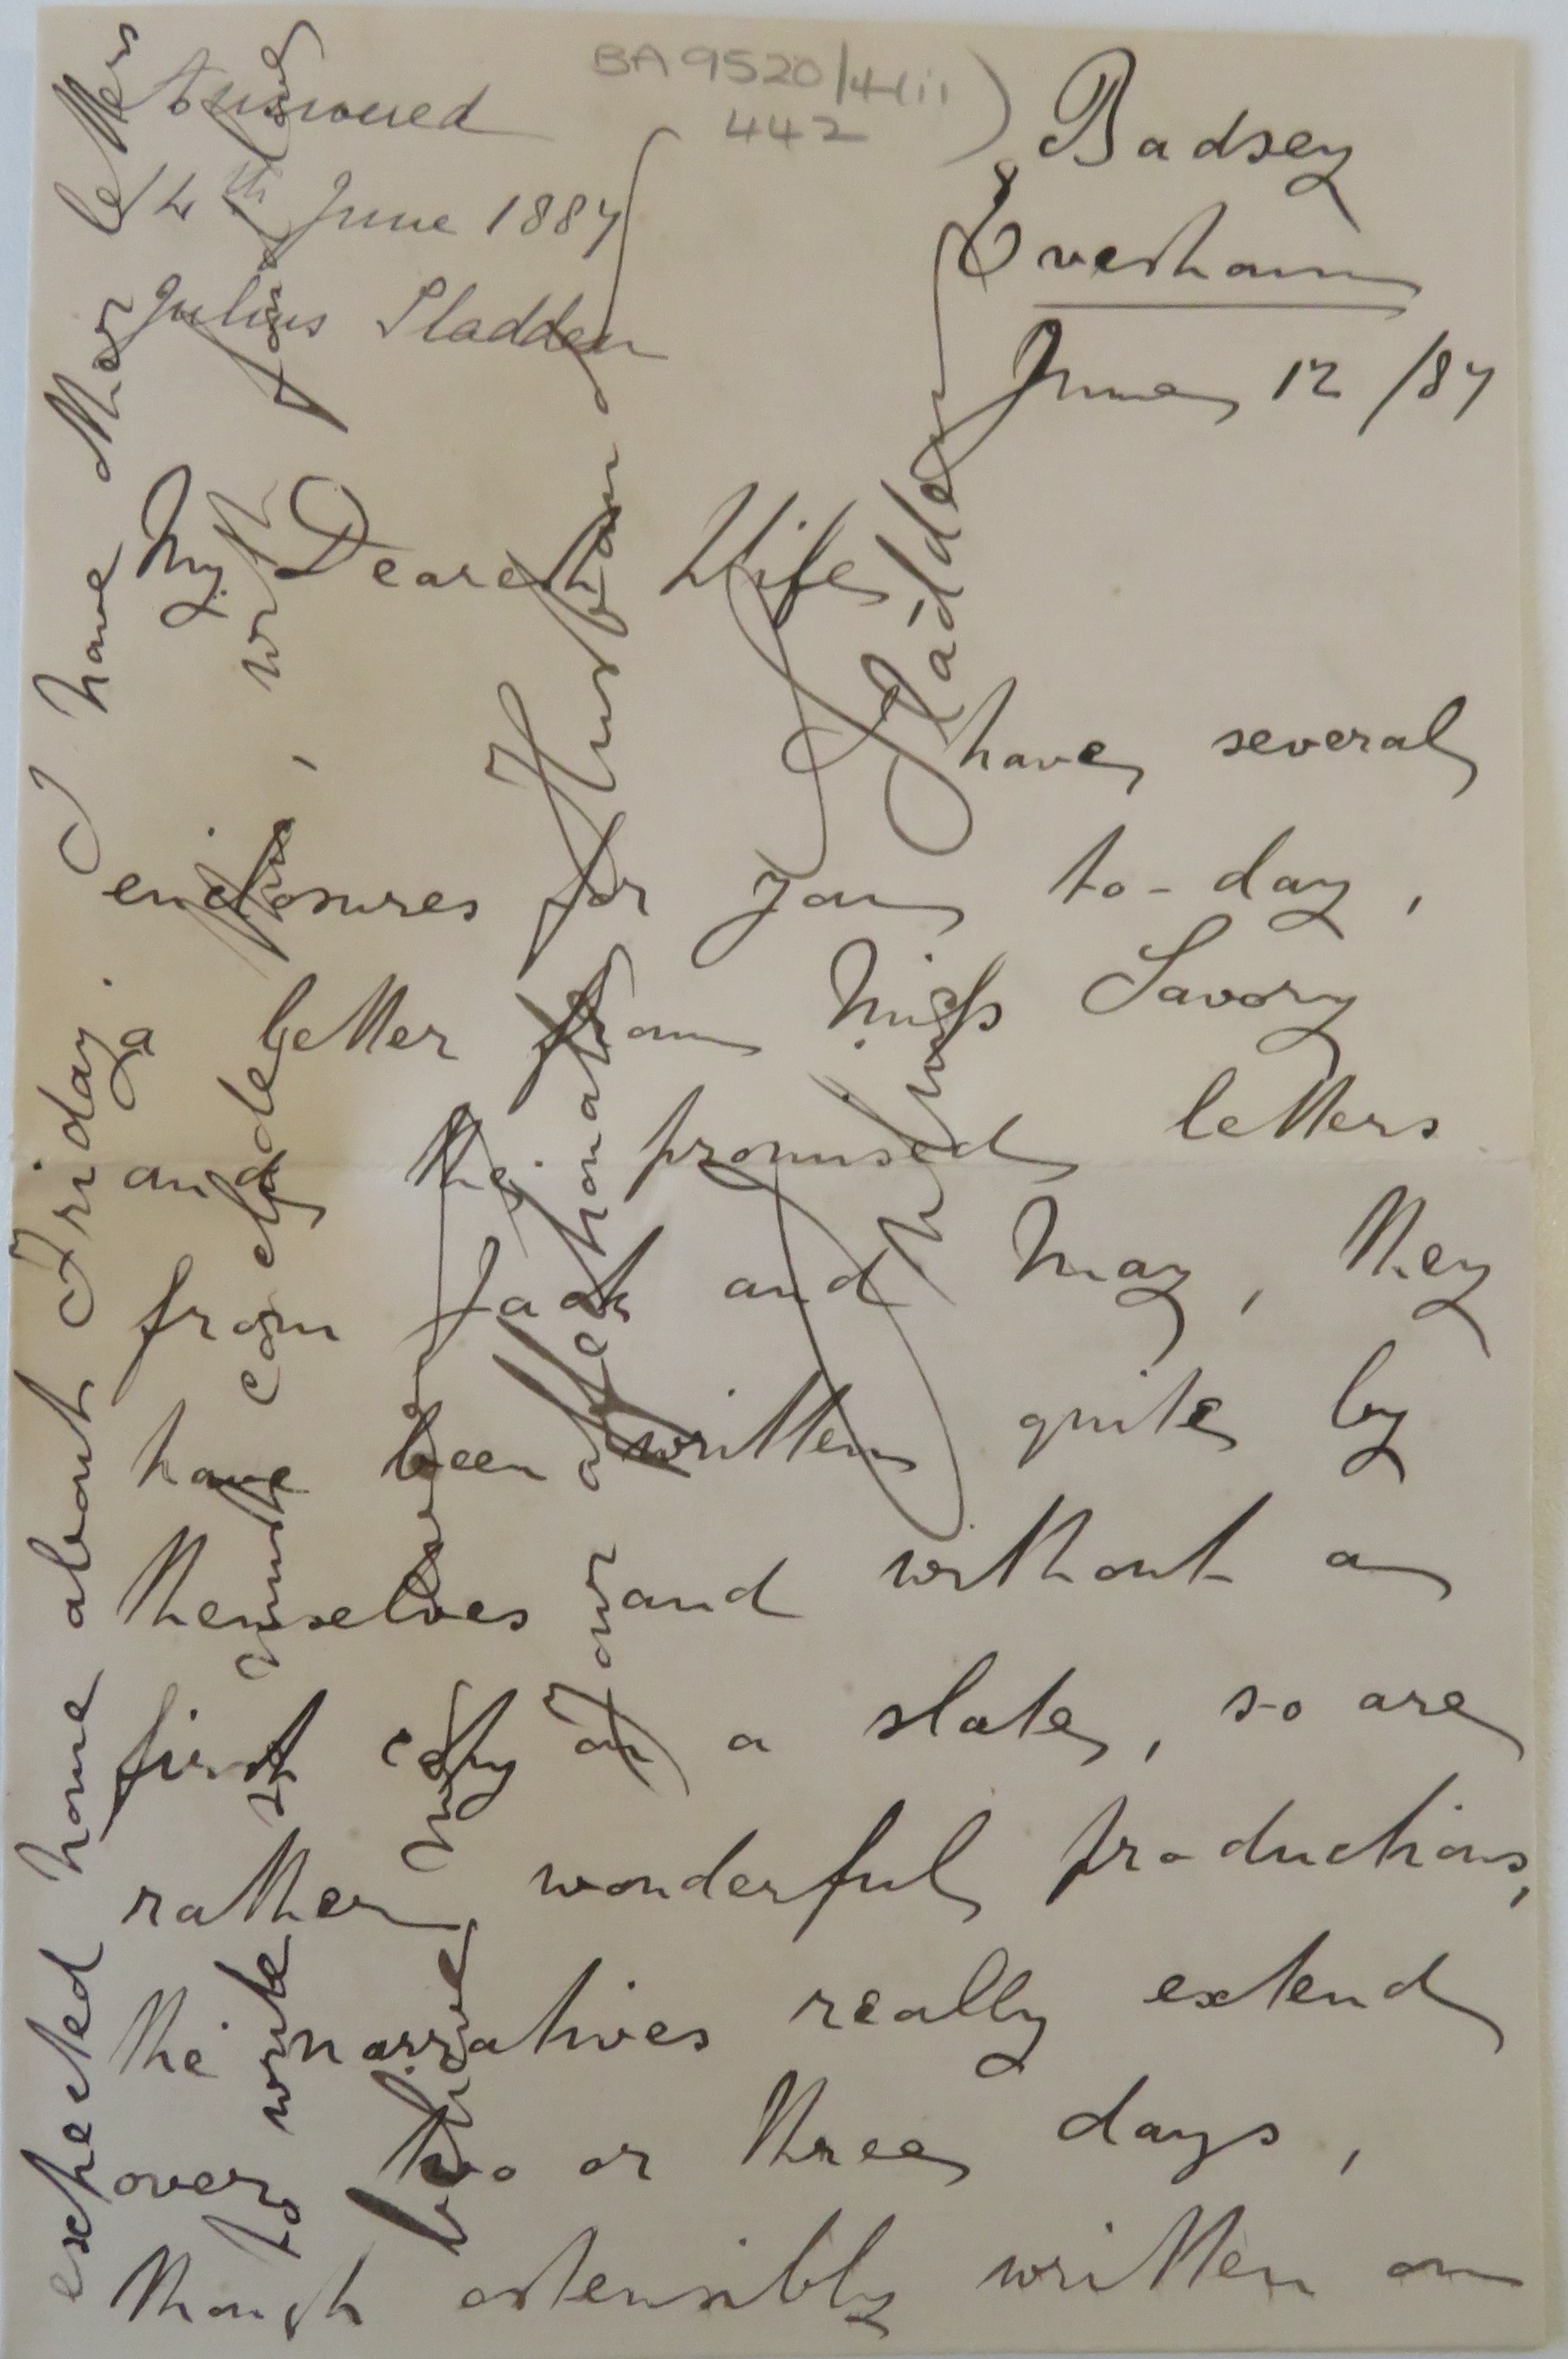 BA 9520/4(ii)
442
Answered
14th June 1887
Julius Sladden
Badsey
Evesham
June 12 /87
My Dearest Wife
I have several
enclosures for you to-day,
a letter from Miss Savory
and the promised letters
from Jack and May, they
have been written quite by
themselves and without a
first copy on a slate, so are
rather wonderful productions,
the narratives really extend
over two or three days,
though ostensibly written on
expected home about Friday. I have other letters
to write with fond love
believe me
Your affectionate Husband
Julius Sladden